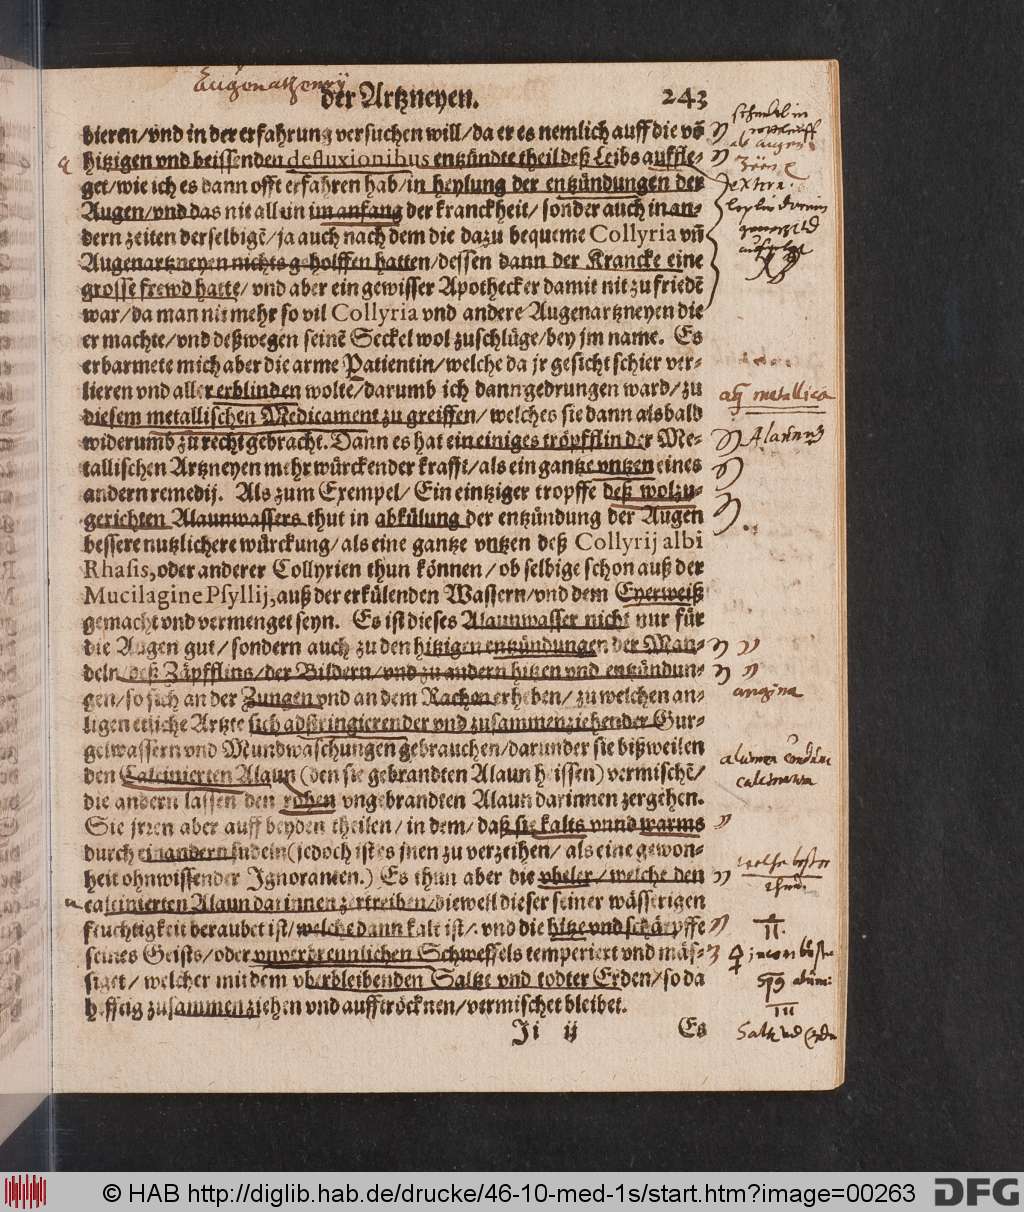 der Artzneyen. 243
bieren/vnd in der erfahrung versuchen will/da er es nemlich auff die võ
hitzigen vnd beissenden defluxionibus entzündte theil deß Leibs auffle-
get/wie ich es dann offt erfahren hab/in heylung der entzündungen der
Augen/vnd das nit allein im anfang der kranckheit/sonder auch in an-
dern zeiten derselbigẽ/ja auch nach dem die dazu bequeme Collyria vñ
Augenartzneyen nichts geholffen hatten/dessen dann der Krancke eine
grosse frewd hatte/vnd aber ein gewisser Apothecker damit nit zu friedẽ
war/da man nit mehr so vil Collyria vnd andere Augenartzneyen die
er machte/vnd deßwegen seinẽ Seckel wol zuschlüge/bey jm name. Es
erbarmete mich aber die arme Patientin/welche da jr gesicht schier ver-
lieren vnd aller erblinden wolte/darumb ich dann gedrungen ward/zu
diesem metallischen Medicament zu greiffen/welches sie dann als bald
widerumb zu recht gebracht. Dann es hat ein einiges tröpfflin der Me-
tallischen Artzneyen mehr würckender krafft/als ein gantze vntzen eines
andern remedij. Als zum Exempel/Ein eintziger tropffe deß wolzu-
gerichten Alaunwassers thut in abkülung der entzündung der Augen
bessere nutzlichere würckung/als eine gantze vntzen deß Collyrij albi
Rhasis, oder anderer Collyrien thun können/ob selbige schon auß der
Mucilagine Psyllij, auß der erkülenden Wassern/vnd dem Eyerweiß
gemacht vnd vermenget seyn. Es ist dieses Alaunwasser nicht nur für
die Augen gut/sondern auch zu den hitzigen entzündungen der Man-
deln/deß Zäpfflins/der Bildern/vnd zu andern hitzen vnd entzündun-
gen/so sich an der Zungen vnd an dem Rachen erheben/zu welchen an-
ligen etliche Artzte sich adstringierender vnd zusammenziehender Gur-
gelwassern vnd Mundwaschungen gebrauchen/darunder sie bißweilen
den Calcinierten Alaun (den sie gebrandten Alaun heissen) vermischẽ/
die andern lassen den rohen vngebrandten Alaun darinnen zergehen.
Sie jrren aber auff beyden theilen/in dem/daß sie kalts vnnd warms
durch einandern sudeln (jedoch ist es jnen zu verzeihen/als eine gewon-
heit ohnwissender Ignoranten.) Es thun aber die vbeler/welche den
calcinierten Alaun darinnen zertreiben/dieweil dieser seiner wässerigen
feuchtigkeit beraubet ist/welche dann kalt ist/vnd die hitze vnd schärpffe
seines Geists/oder vnverbrennlichen Schweffels temperiert vnd mäs-
siget/welcher mit dem vberbleibenden Saltze vnd todter Erden/so da
hefftig zusammen ziehen vnd aufftröcknen/vermischet bleibet.
Ji ij Es
metallica
angina
© HAB http://diglib.hab.de/drucke/46-10-med-1s/start.htm?image=00263 DFG